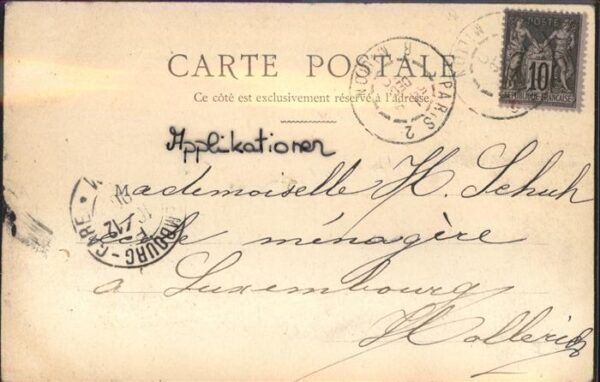 CARTE POSTALE
Ce côté est exclusivement réservé à l'adresse
POSTE
10
RÉPUBLIQUE FRANÇAISE
PARIS 2
DÉC
Applikationen
Mademoiselle H. Schuh
école ménagère
à Luxembourg
Hollerich
MBOURG-GARE